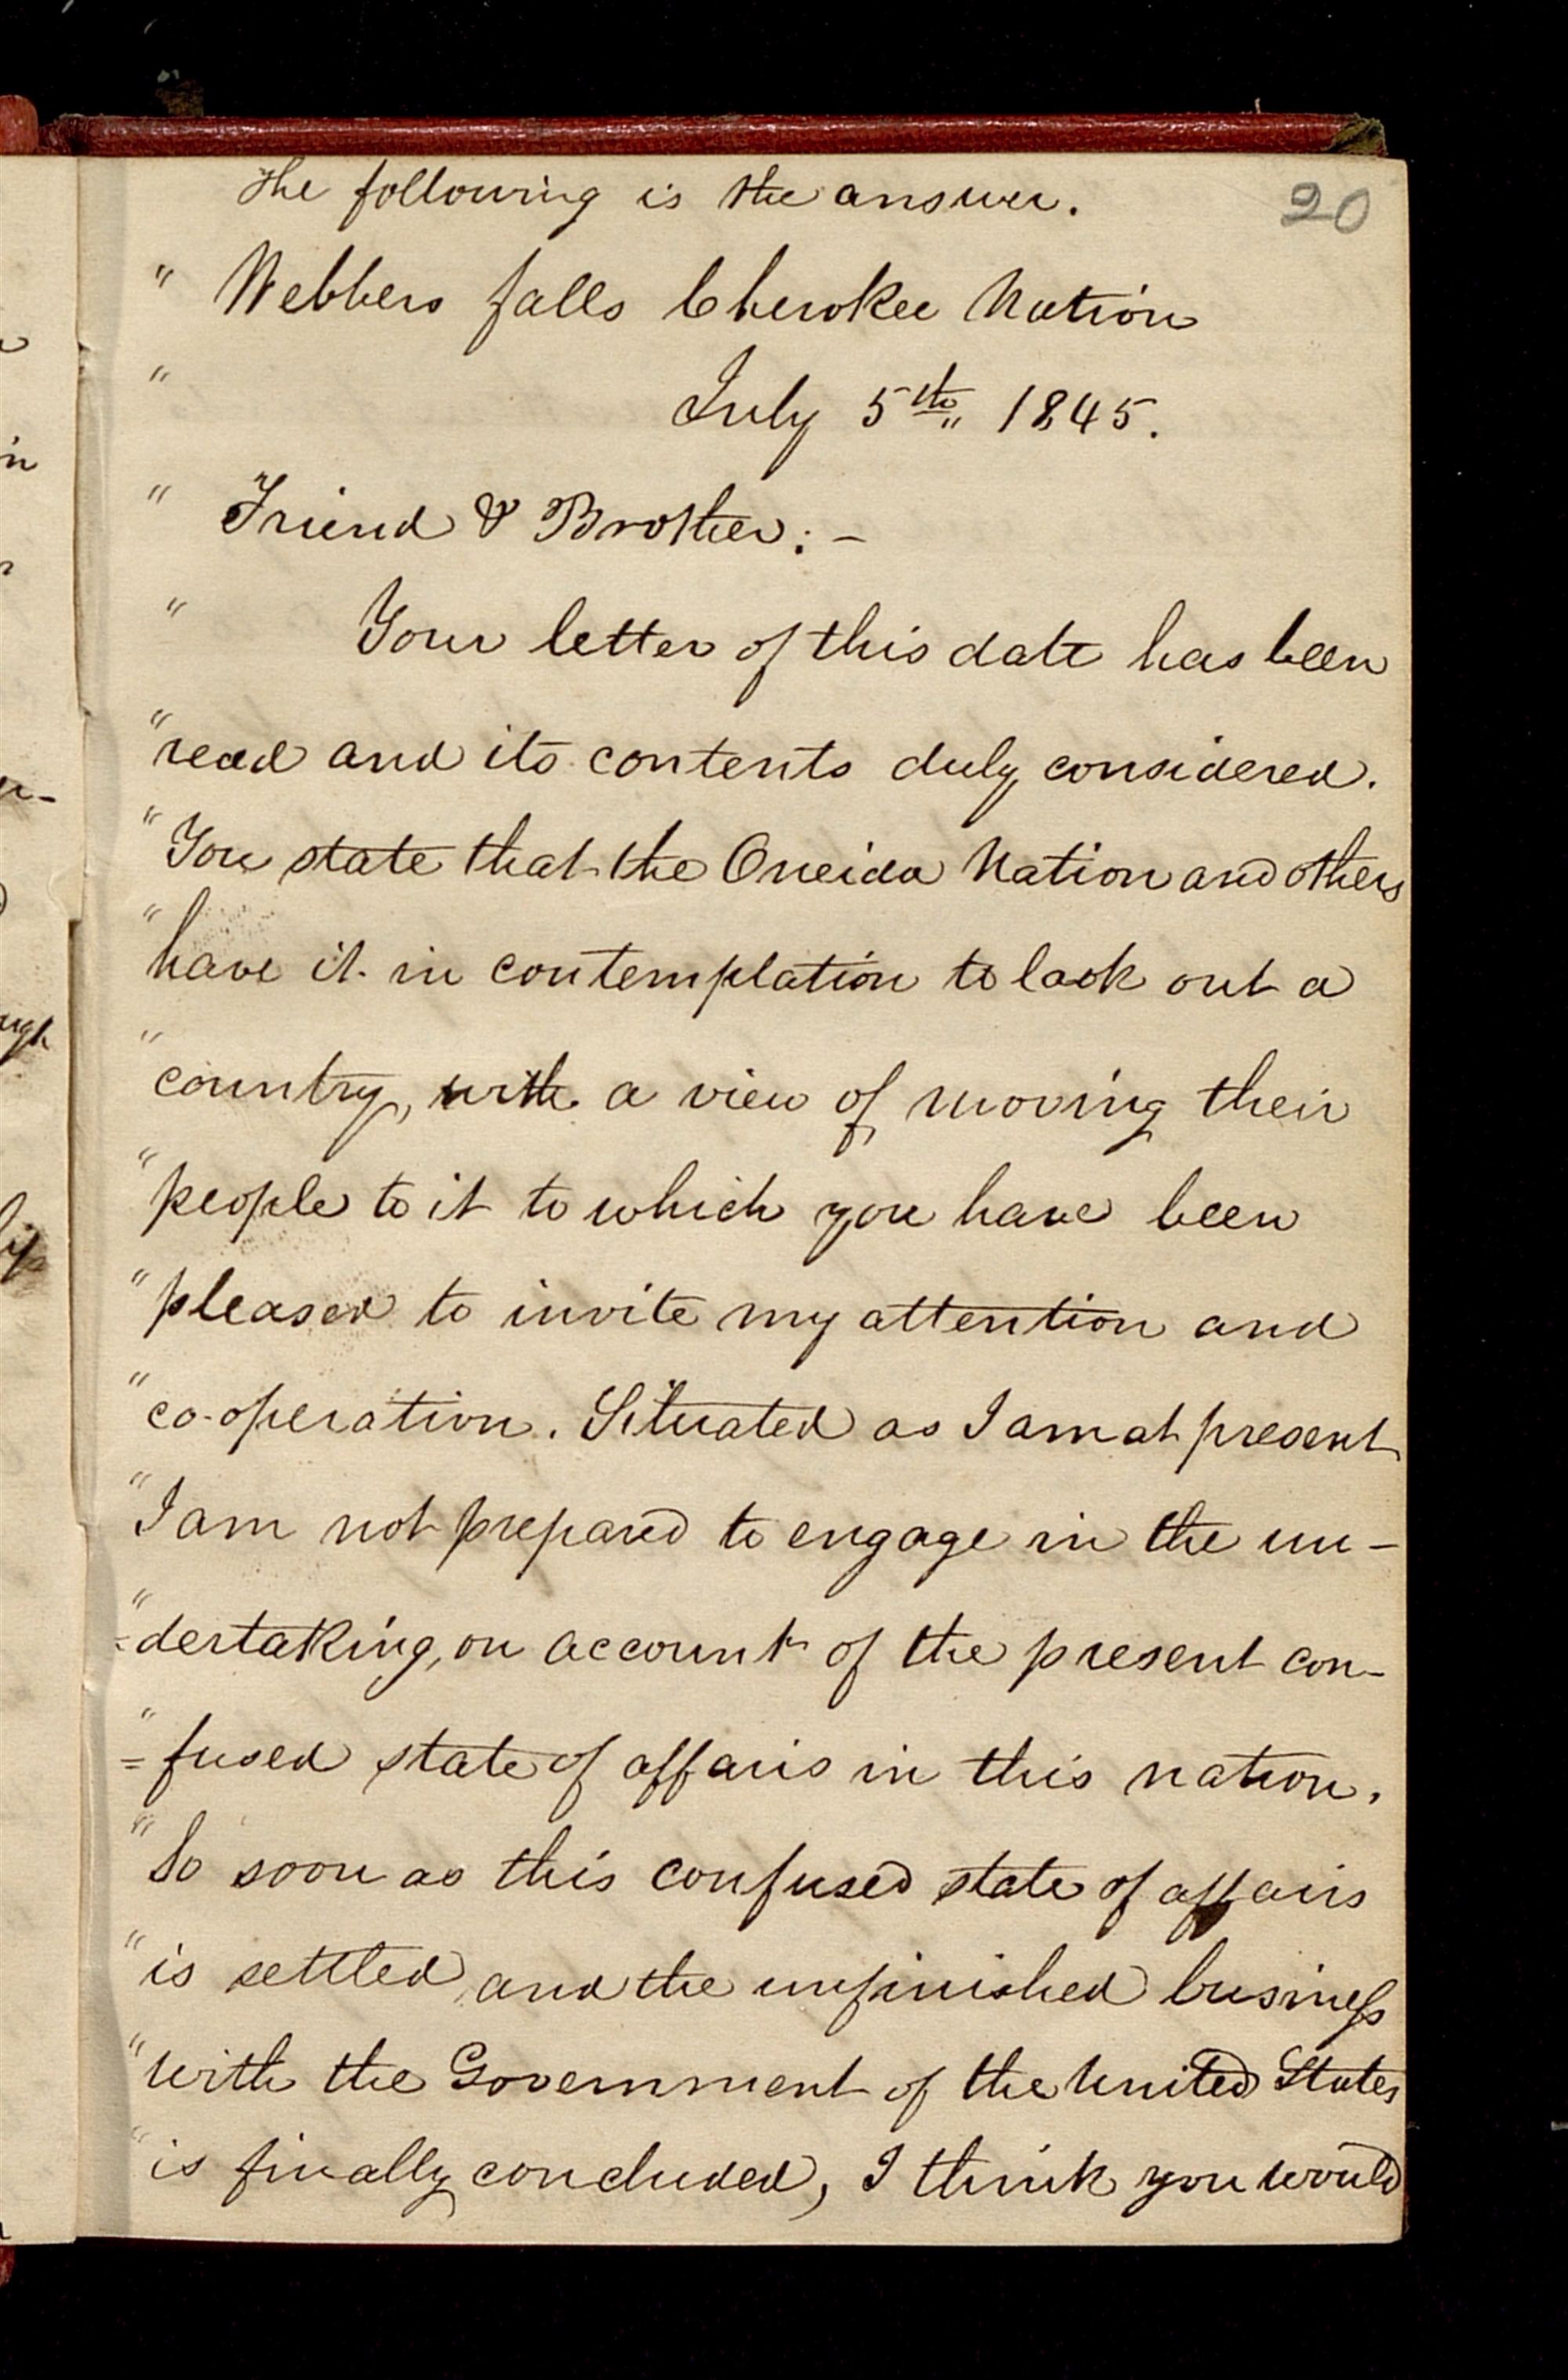 The following is the answer.
20
" Webbers falls Cherokee Nation
" July 5th 1845.
" Friend & Brother: –
" Your letter of this date has been
" read and its contents duly considered.
" You state that the Oneida Nation and others
" have it in contemplation to look out a
" country, with a view of moving their
" people to it to which you have been
" pleased to invite my attention and
" co-operation. Situated as I am at present
" I am not prepared to engage in the un-
" =dertaking, on account of the present con-
" =fused state of affairs in this nation.
" So soon as this confused state of affairs
" is settled, and the unfinished business
" with the Government of the United States
" is finally concluded, I think you would